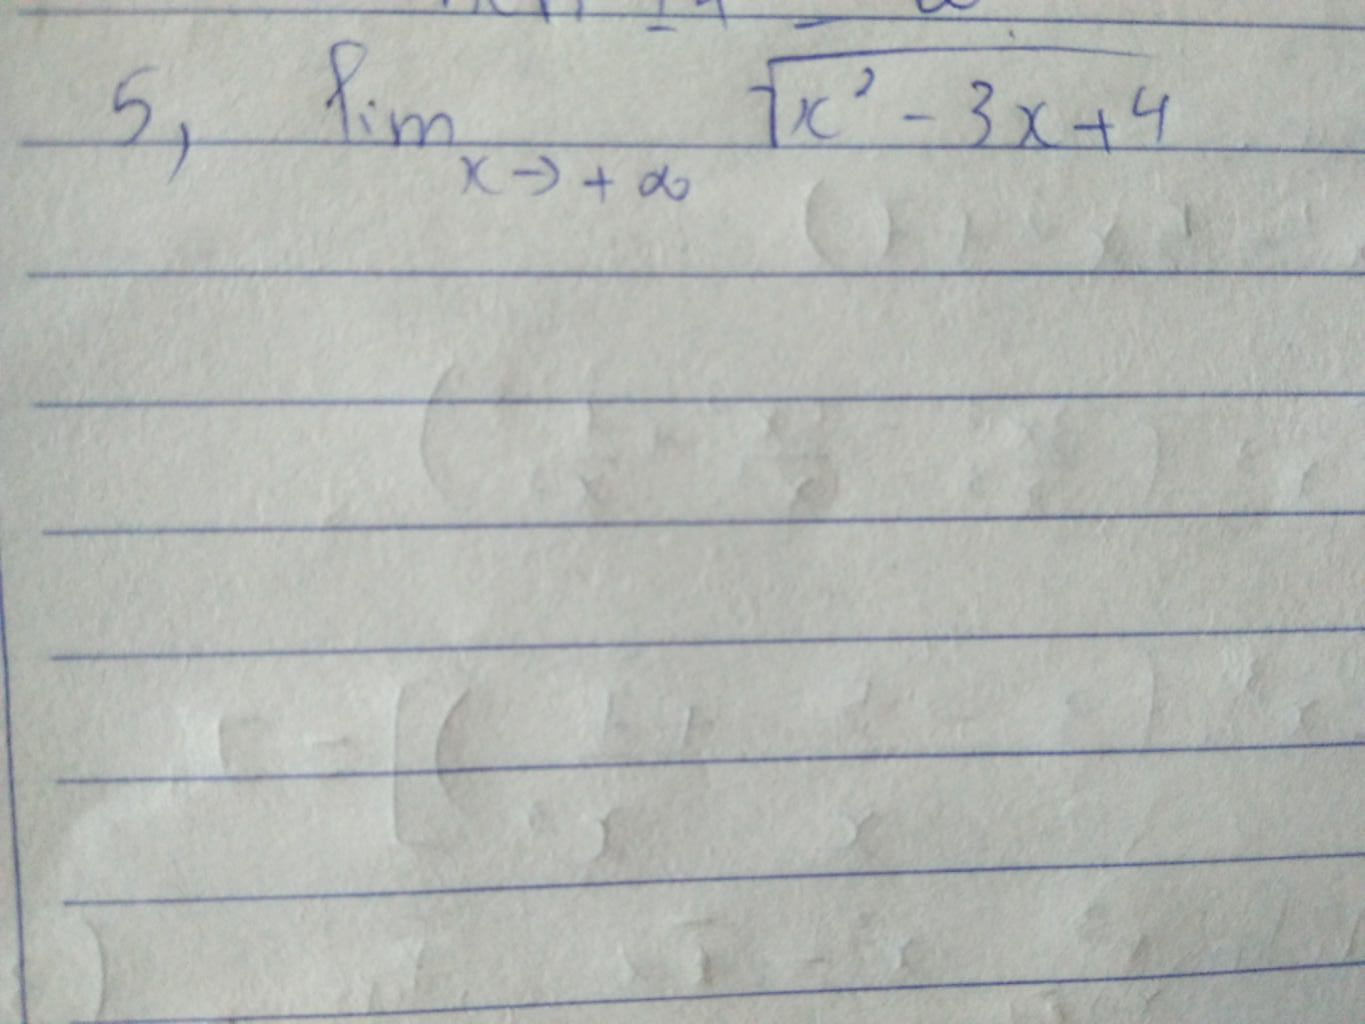 5, lim x→+∞ √x² - 3x + 4